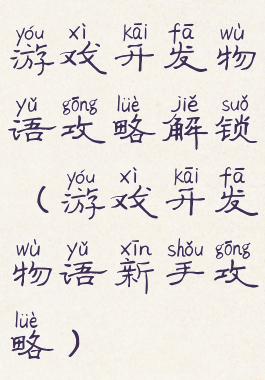 yóu xì kāi fā wù
游戏开发物
yǔ gōng lüè jiě suǒ
语攻略解锁
yóu xì kāi fā
（游戏开发
wù yǔ xīn shǒu gōng
物语新手攻
lüè
略）